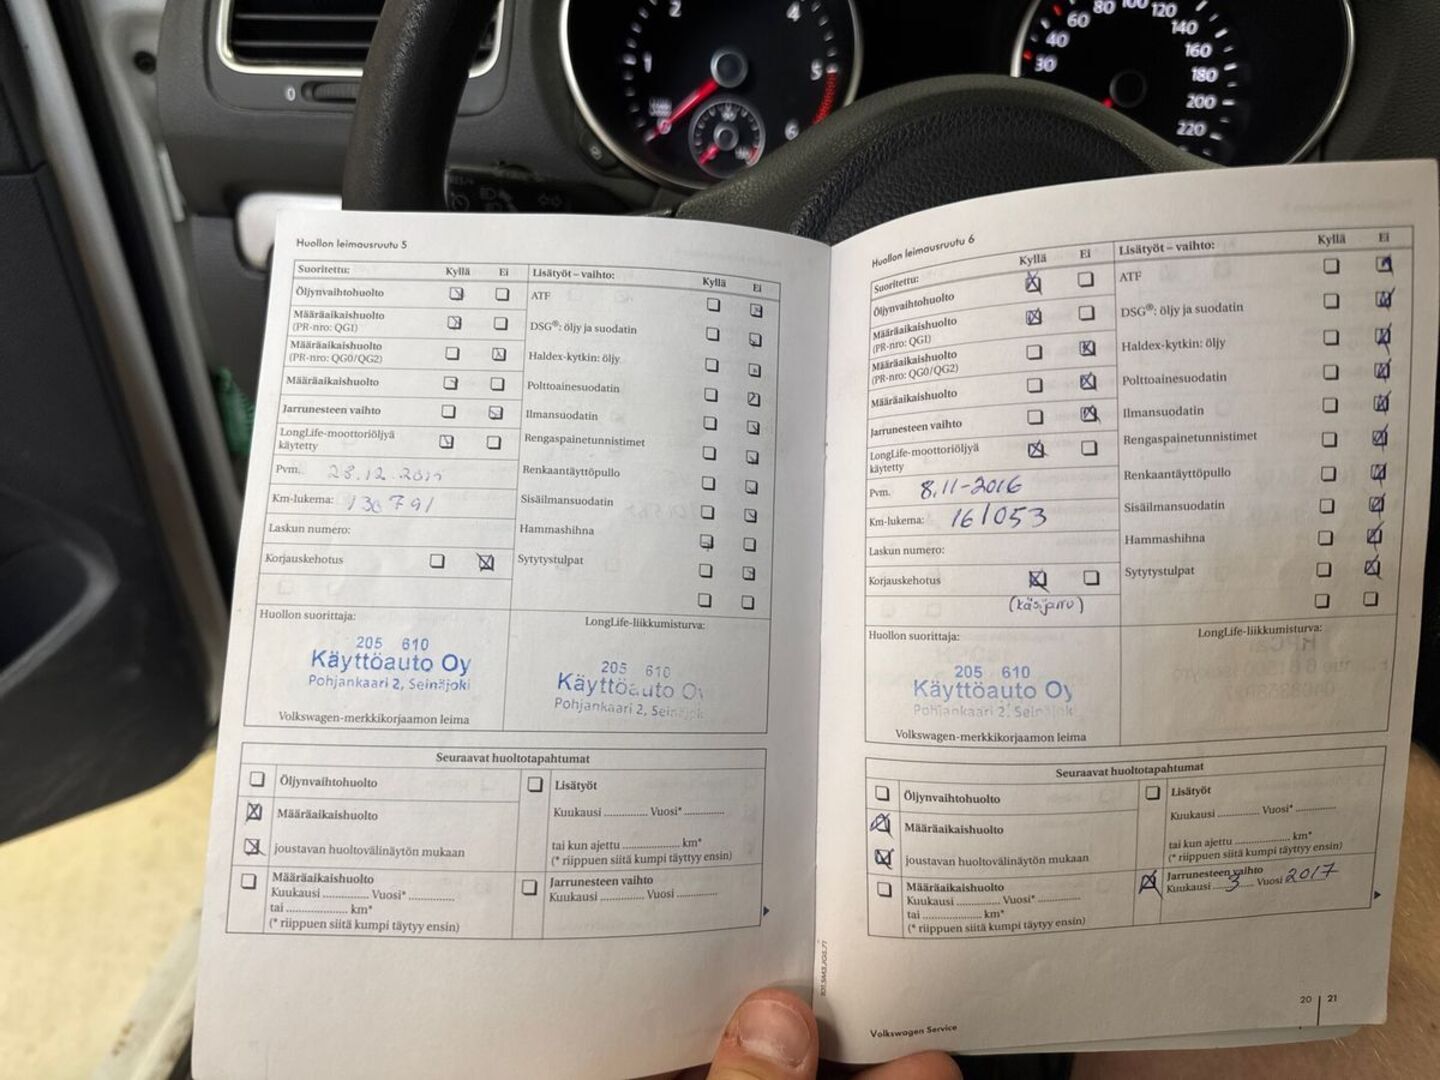 2
4
1
5
6
0
30
40
60
80
100
120
140
160
180
200
220
Huollon leimausruutu 5
Suoritettu: Kyllä Ei Lisätyöt – vaihto: Kyllä Ei
Öljynvaihtohuolto
Määräaikaishuolto
(PR-nro: QG1)
Määräaikaishuolto
(PR-nro: QG0/QG2)
Määräaikaishuolto
Jarrunesteen vaihto
LongLife-moottoriöljyä
käytetty
Pvm. 28.12.2015
Km-lukema: 130791
Laskun numero:
Korjauskehotus
ATF
DSG®: öljy ja suodatin
Haldex-kytkin: öljy
Polttoainesuodatin
Ilmansuodatin
Rengaspainetunnistimet
Renkaantäyttöpullo
Sisäilmansuodatin
Hammashihna
Sytytystulpat
Huollon suorittaja:
205 610
Käyttöauto Oy
Pohjankaari 2, Seinäjoki
Volkswagen-merkkikorjaamon leima
LongLife-liikkumisturva:
205 610
Käyttöauto Oy
Pohjankaari 2, Seinäjok
Seuraavat huoltotapahtumat
Öljynvaihtohuolto
Määräaikaishuolto
joustavan huoltovälinäytön mukaan
Määräaikaishuolto
Kuukausi .............. Vuosi* ..............
tai ................... km*
(* riippuen siitä kumpi täytyy ensin)
Lisätyöt
Kuukausi .............. Vuosi* ..............
tai kun ajettu ................... km*
(* riippuen siitä kumpi täyttyy ensin)
Jarrunesteen vaihto
Kuukausi .............. Vuosi ..............
Huollon leimausruutu 6
Suoritettu: Kyllä Ei Lisätyöt – vaihto: Kyllä Ei
Öljynvaihtohuolto
Määräaikaishuolto
(PR-nro: QG1)
Määräaikaishuolto
(PR-nro: QG0/QG2)
Määräaikaishuolto
Jarrunesteen vaihto
LongLife-moottoriöljyä
käytetty
Pvm. 8.11-2016
Km-lukema: 161053
Laskun numero:
Korjauskehotus
(käsijarru)
ATF
DSG®: öljy ja suodatin
Haldex-kytkin: öljy
Polttoainesuodatin
Ilmansuodatin
Rengaspainetunnistimet
Renkaantäyttöpullo
Sisäilmansuodatin
Hammashihna
Sytytystulpat
Huollon suorittaja:
205 610
Käyttöauto Oy
Pohjankaari 2, Seinäjok
Volkswagen-merkkikorjaamon leima
LongLife-liikkumisturva:
Seuraavat huoltotapahtumat
Öljynvaihtohuolto
Määräaikaishuolto
joustavan huoltovälinäytön mukaan
Määräaikaishuolto
Kuukausi .............. Vuosi* ..............
tai ................... km*
(* riippuen siitä kumpi täytyy ensin)
Lisätyöt
Kuukausi .............. Vuosi* ..............
tai kun ajettu ................... km*
(* riippuen siitä kumpi täyttyy ensin)
Jarrunesteen vaihto
Kuukausi ....3.... Vuosi 2017
Volkswagen Service
20 | 21